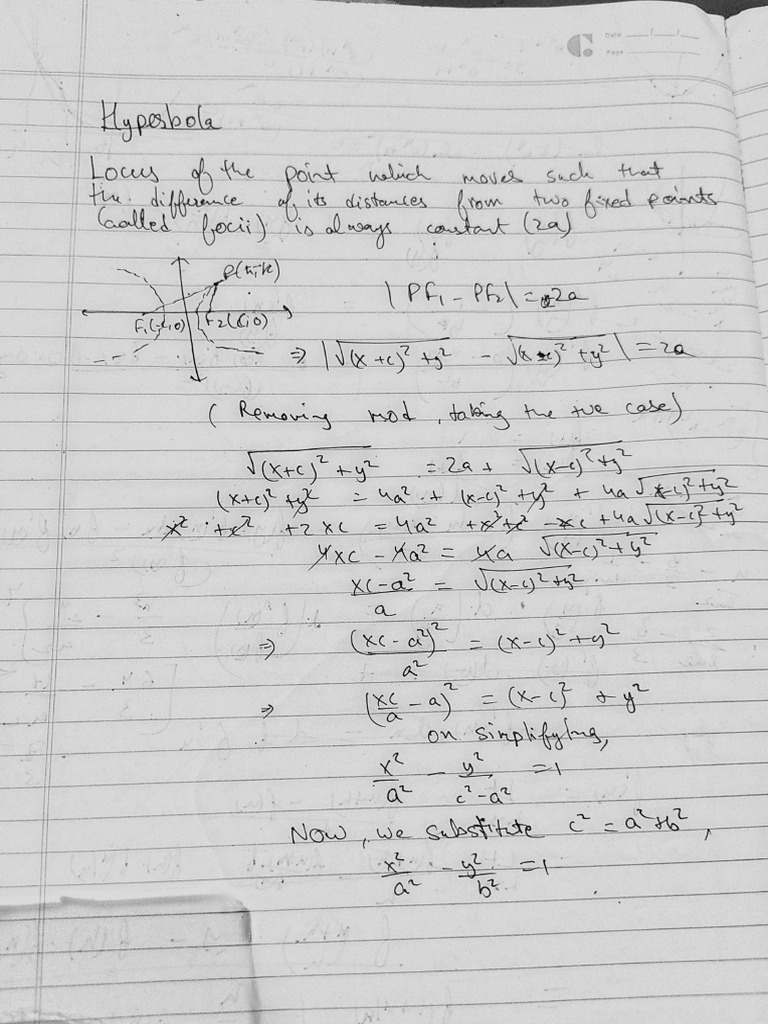 Date
Page
Hyperbola
Locus of the point which moves such that
the difference of its distances from two fixed points
(called focii) is always constant (2a)
P(h,k)
F₁(-c,0) F₂(c,0)
|PF₁ - PF₂| = 2a
⇒ |√(x+c)² + y² - √(x-c)² + y²| = 2a
(Removing mod, taking the +ve case)
√(x+c)² + y² = 2a + √(x-c)² + y²
(x+c)² + y² = 4a² + (x-c)² + y² + 4a√(x-c)² + y²
x² + c² + 2xc = 4a² + x² + c² - xc + 4a√(x-c)² + y²
4xc - 4a² = 4a √(x-c)² + y²
xc-a²/a = √(x-c)² + y²
⇒ (xc - a²)²/a² = (x-c)² + y²
⇒ (xc/a - a)² = (x-c)² + y²
on simplifying,
x²/a² - y²/c²-a² = 1
Now, we substitute c² = a² + b²,
x²/a² - y²/b² = 1